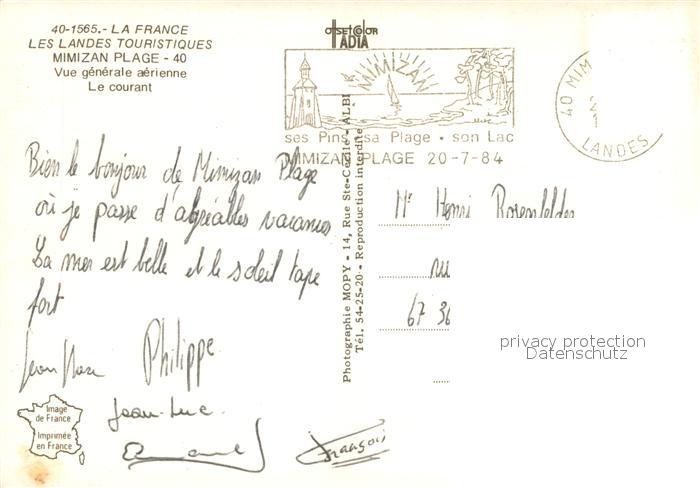 40-1565.- LA FRANCE
LES LANDES TOURISTIQUES
MIMIZAN PLAGE - 40
Vue générale aérienne
Le courant
offset color
IADIA
MIMIZAN
ses Pins . sa Plage . son Lac
MIMIZAN PLAGE 20-7-84
40 MIM
LANDES
Bien le bonjour de Mimizan Plage
où je passe d'agréables vacances
La mer est belle et le soleil tape
fort
Jean Marc Philippe
Jean-Luc
François
Image
de France
Imprimée
en France
Photographie MOPY - 14, Rue Ste-Cécile - ALBI
Tél. 54-25-20 - Reproduction interdite
Mr Henri Rosenfelder
ru
67 36
privacy protection
Datenschutz